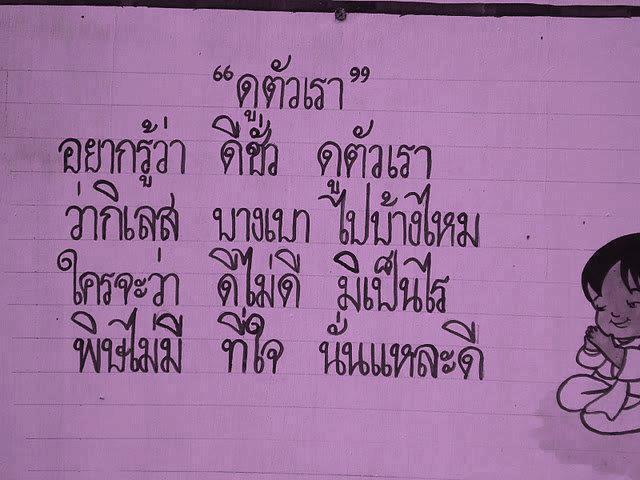 “ดูตัวเรา”
อยากรู้ว่า ดีชั่ว ดูตัวเรา
ว่ากิเลส บางเบา ไปบ้างไหม
ใครจะว่า ดีไม่ดี มิเป็นไร
พิษไม่มี ที่ใจ นั่นแหละดี